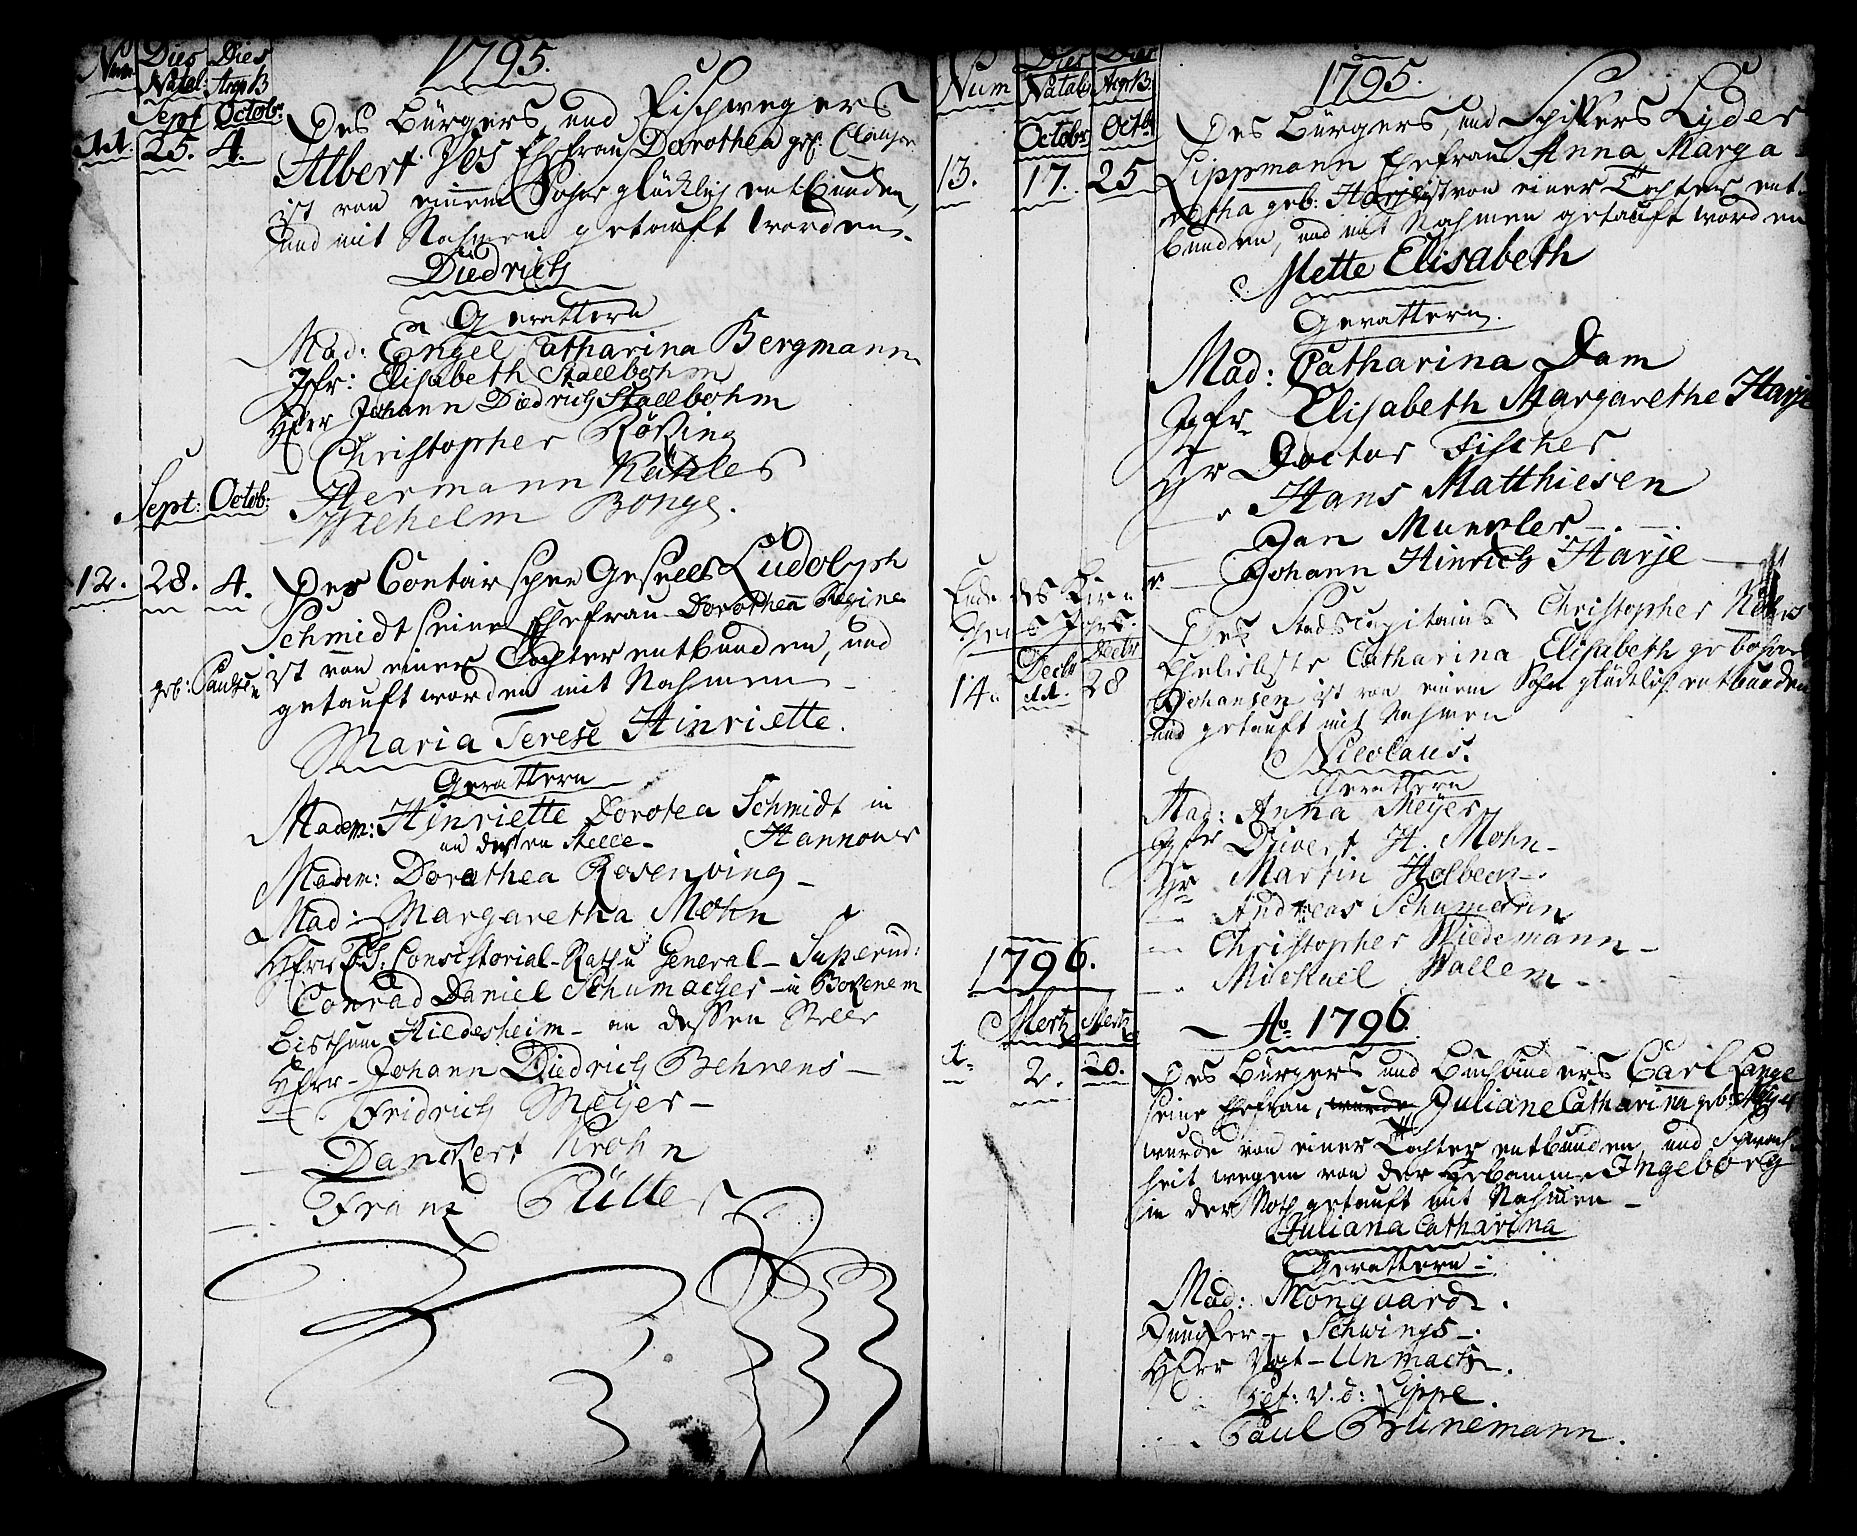 Num Dies Natal: Dies
1795.
Sept Octobr:
11. 25. 4.
Des Bürgers und
Albert Jos Ehefrau Dorothea geb: Clausen
ist von einem Sohn glücklich entbunden,
und mit Nahmen getauft worden.
Diedrich
Gevattern
Mad: Engel Catharina Bergmann
Jgfr: Elisabeth Stallbohm
Herr Johann Diedrich Stallbohm
Christopher Röhing
Hermann
Wilhelm Bonge.
Sept: Octob:
12. 28. 4.
Des Gesells Ludolyph
Schmidt seine Ehefrau Dorothea Regine
geb:
ist von einer Tochter entbunden, und
getauft worden mit Nahmen
Maria Terese Hinriette.
Gevattern
Madem: Hinriette Dorotea Schmidt in
an deren Stelle Hannover
Madem: Dorothea Rosenving
Mad: Margaretha Mohn
Herr Consistorial-Rath u General-Superind:
Conrad Daniel Schumacher in Bokenem
Bisthum Hildesheim an dessen Stelle
Herr Johann Diedrich Behrens
Fridrich Meyer
Danckert Krohn
Franz
Num Dies Natal:
1795.
Octobr Octbr
13. 17. 25
Des Bürgers, und Lyder
Lippmann Ehefrau Anna Marga
retha geb: Harje ist von einer Tochter ent-
bunden, und mit Nahmen getauft worden
Mette Elisabeth
Gevattern.
Mad: Catharina Dam
Jgfr Elisabeth Margarethe Harje
Hr Doctor Fischer
Hans Matthiesen
Jan
Johann Hinrich Harje
Ende des Kir-
chen Jahrs.
Decbr Decbr
14. 11. 28
Des Stadscapitains Christopher
Eheliebste Catharina Elisabeth gebohrne
Johansen ist von einem Sohn glücklich entbunden
und getauft mit Nahmen
Nicolaus.
Gevattern
Mad: Anna Meyer
Hr Martin Holbeen
Andreas Schumann
Christopher Wiedemann
Michael Wallem
1796.
Mertz Mertz
Ao 1796.
1. 2. 20.
Des Bürgers und Buchbinders Carl Lange
seine Ehefrau, wurde Juliane Catharina geb: Meyer
wurde von einer Tochter entbunden, und Schwach-
heit wegen von der Hebamme Ingeborg
in der Noth getauft mit Nahmen
Juliana Catharina
Gevattern
Mad: Mongaard.
Jungfer Schwings
Herr Vogt Unmack.
v. d: Lippe.
Paul Brünemann.